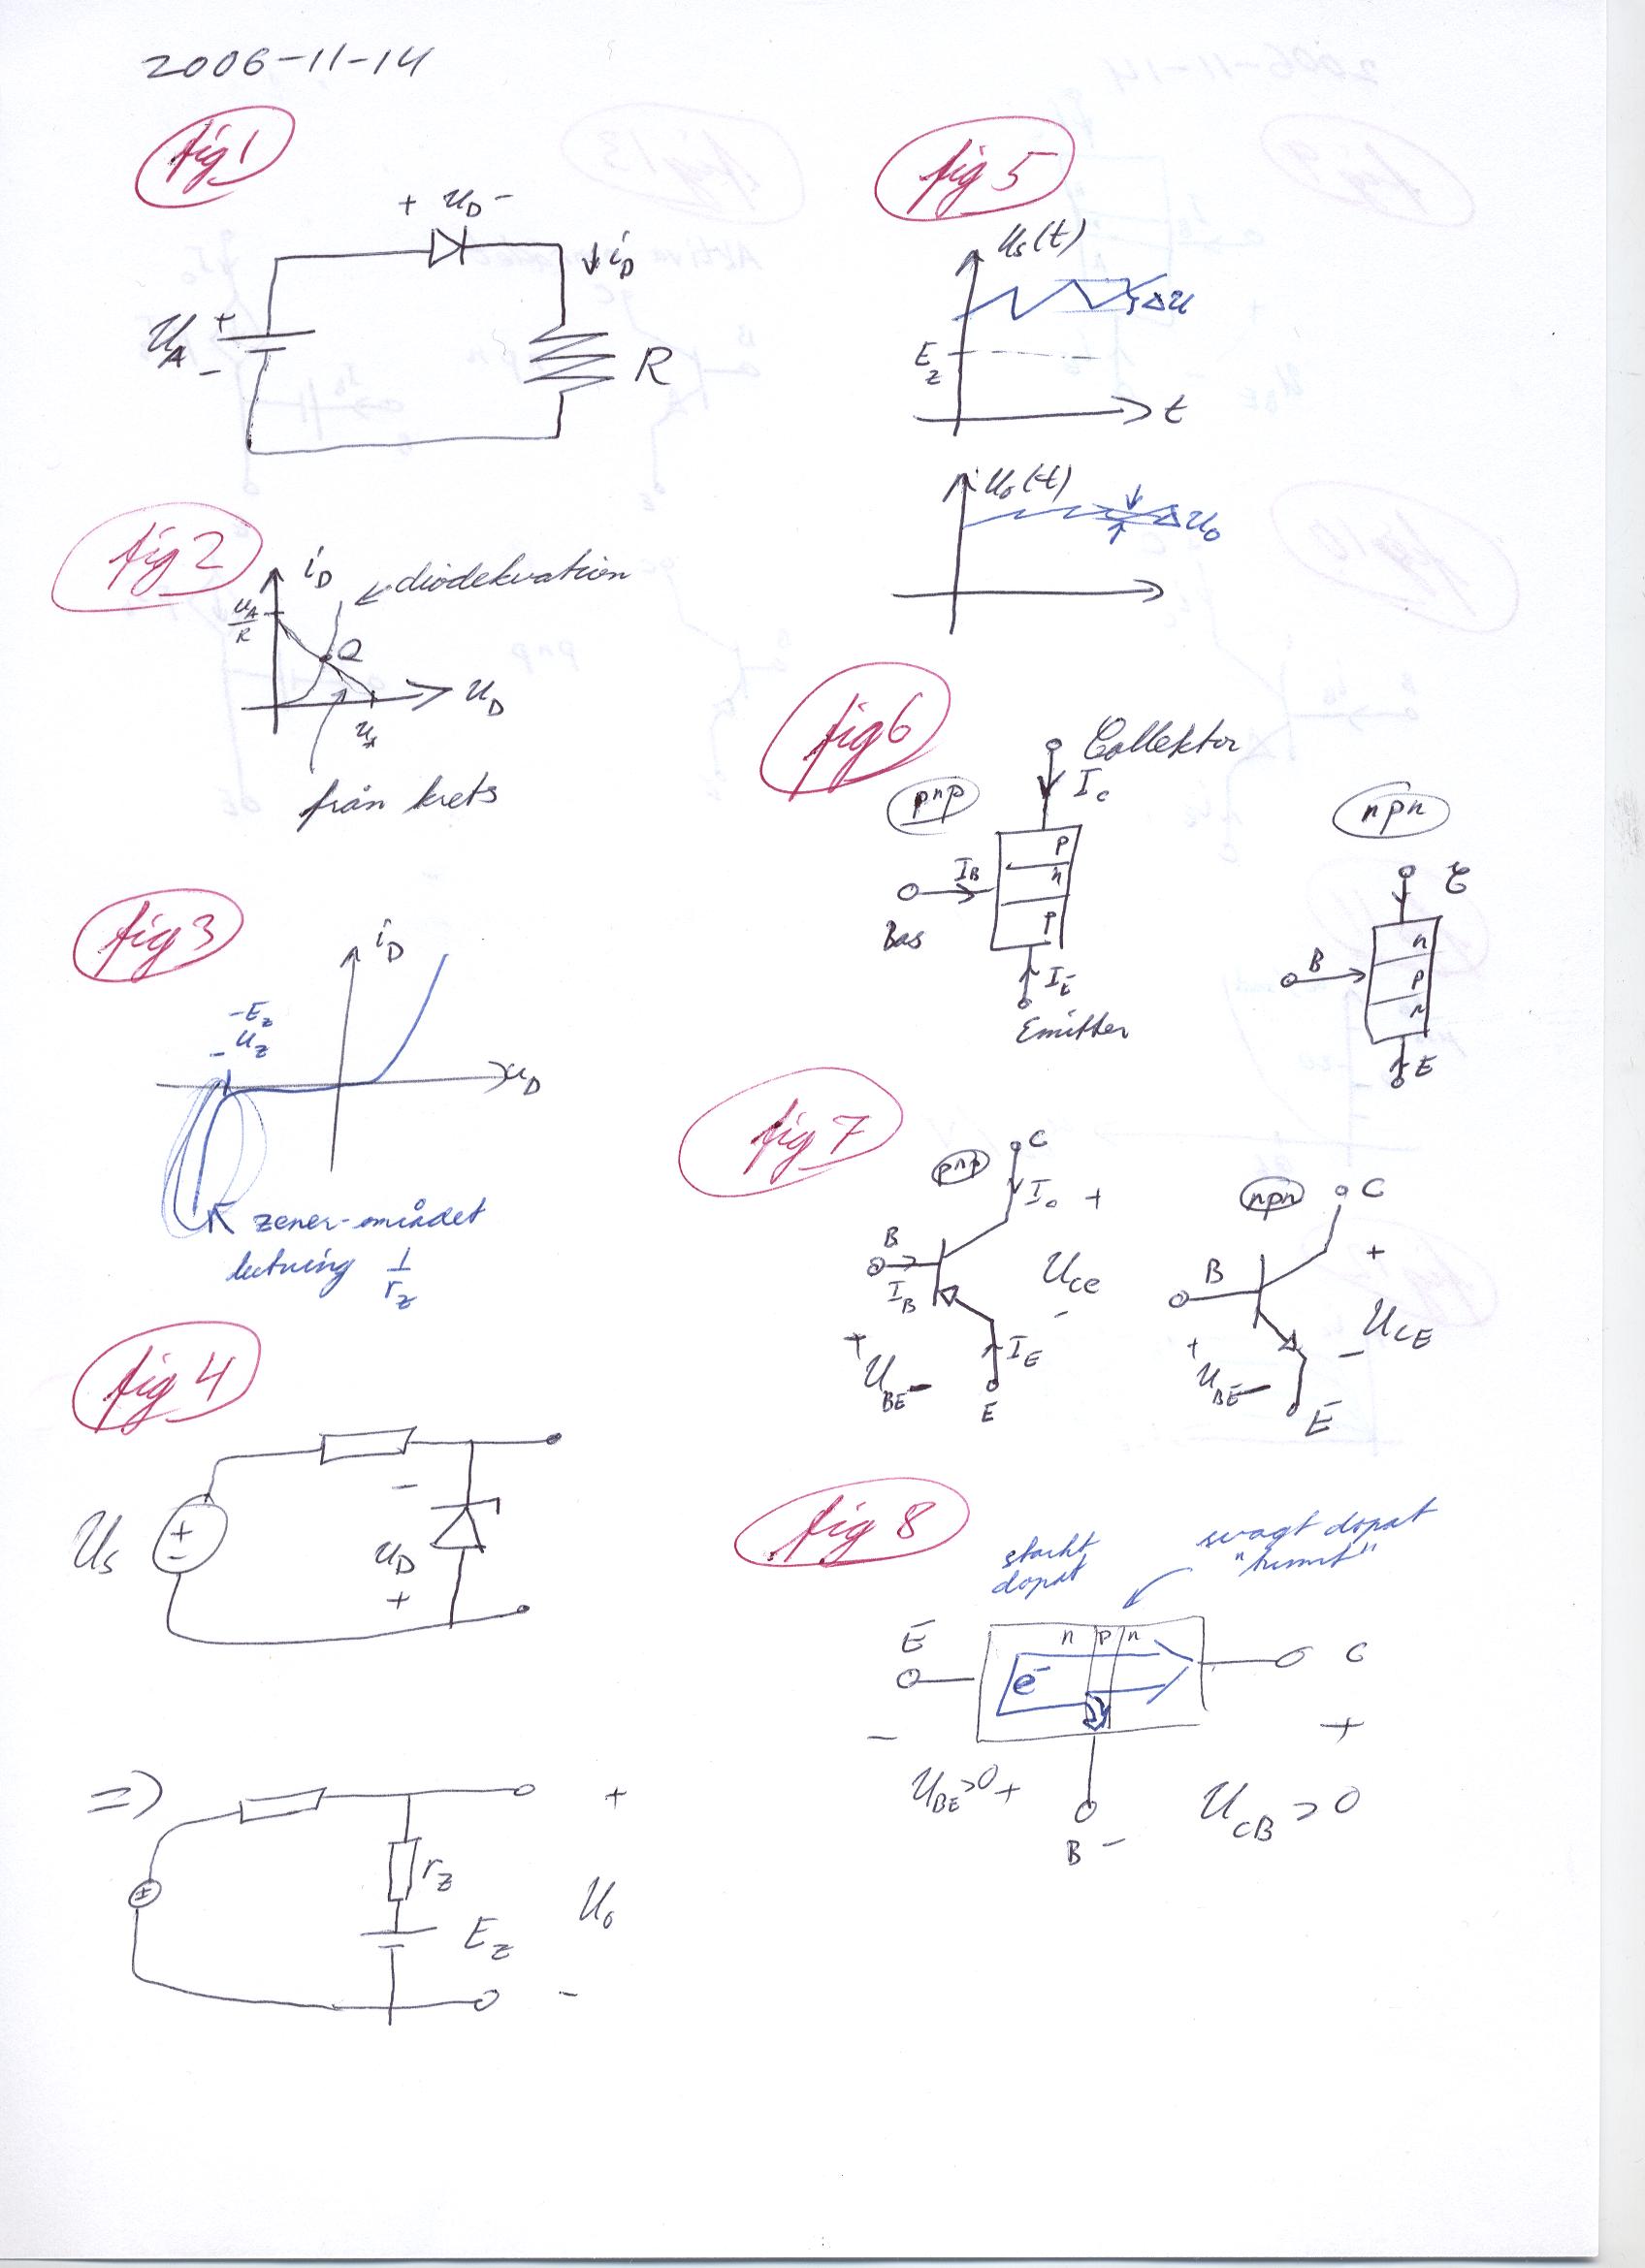 2006-11-14
fig 1
+ u_D -
↓ i_D
U_A
+
-
R
fig 2
i_D
diodekvation
u_A/R
Q
u_D
u_A
från krets
fig 3
i_D
-E_z
u_z
u_D
zener-området
lutning 1/r_z
fig 4
U_s
+
-
-
u_D
+
=>
+
±
r_z
U_o
E_z
-
fig 5
u_s(t)
ΔU
E_z
t
u_o(t)
ΔU_o
fig 6
Collektor
I_c
pnp
npn
p
n
p
I_B
Bas
I_E
Emitter
C
n
p
n
B
E
fig 7
pnp
C
+
B
I_B
U_CE
-
I_E
+
U_BE -
E
npn
C
+
B
U_CE
-
+
U_BE -
E
fig 8
starkt
dopat
svagt dopat
"tunnt"
E
n p n
e⁻
C
-
+
U_BE >0 +
U_CB > 0
B -